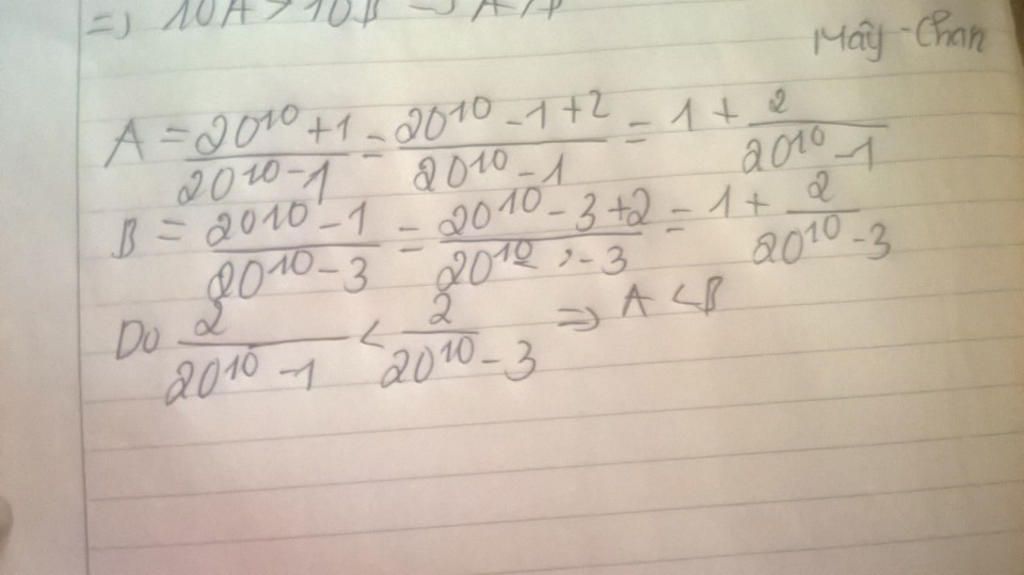 => 10A > 10B => A > B
Mây - Chan
A = \frac{20^{10}+1}{20^{10}-1} = \frac{20^{10}-1+2}{20^{10}-1} = 1 + \frac{2}{20^{10}-1}
B = \frac{20^{10}-1}{20^{10}-3} = \frac{20^{10}-3+2}{20^{10}-3} = 1 + \frac{2}{20^{10}-3}
Do \frac{2}{20^{10}-1} < \frac{2}{20^{10}-3} => A < B